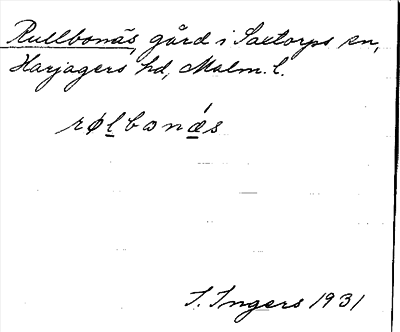 Rullbonäs, gård i Saxtorps sn,
Harjagers hd, Malm. l.
rølbonǽs
I. Ingers 1931